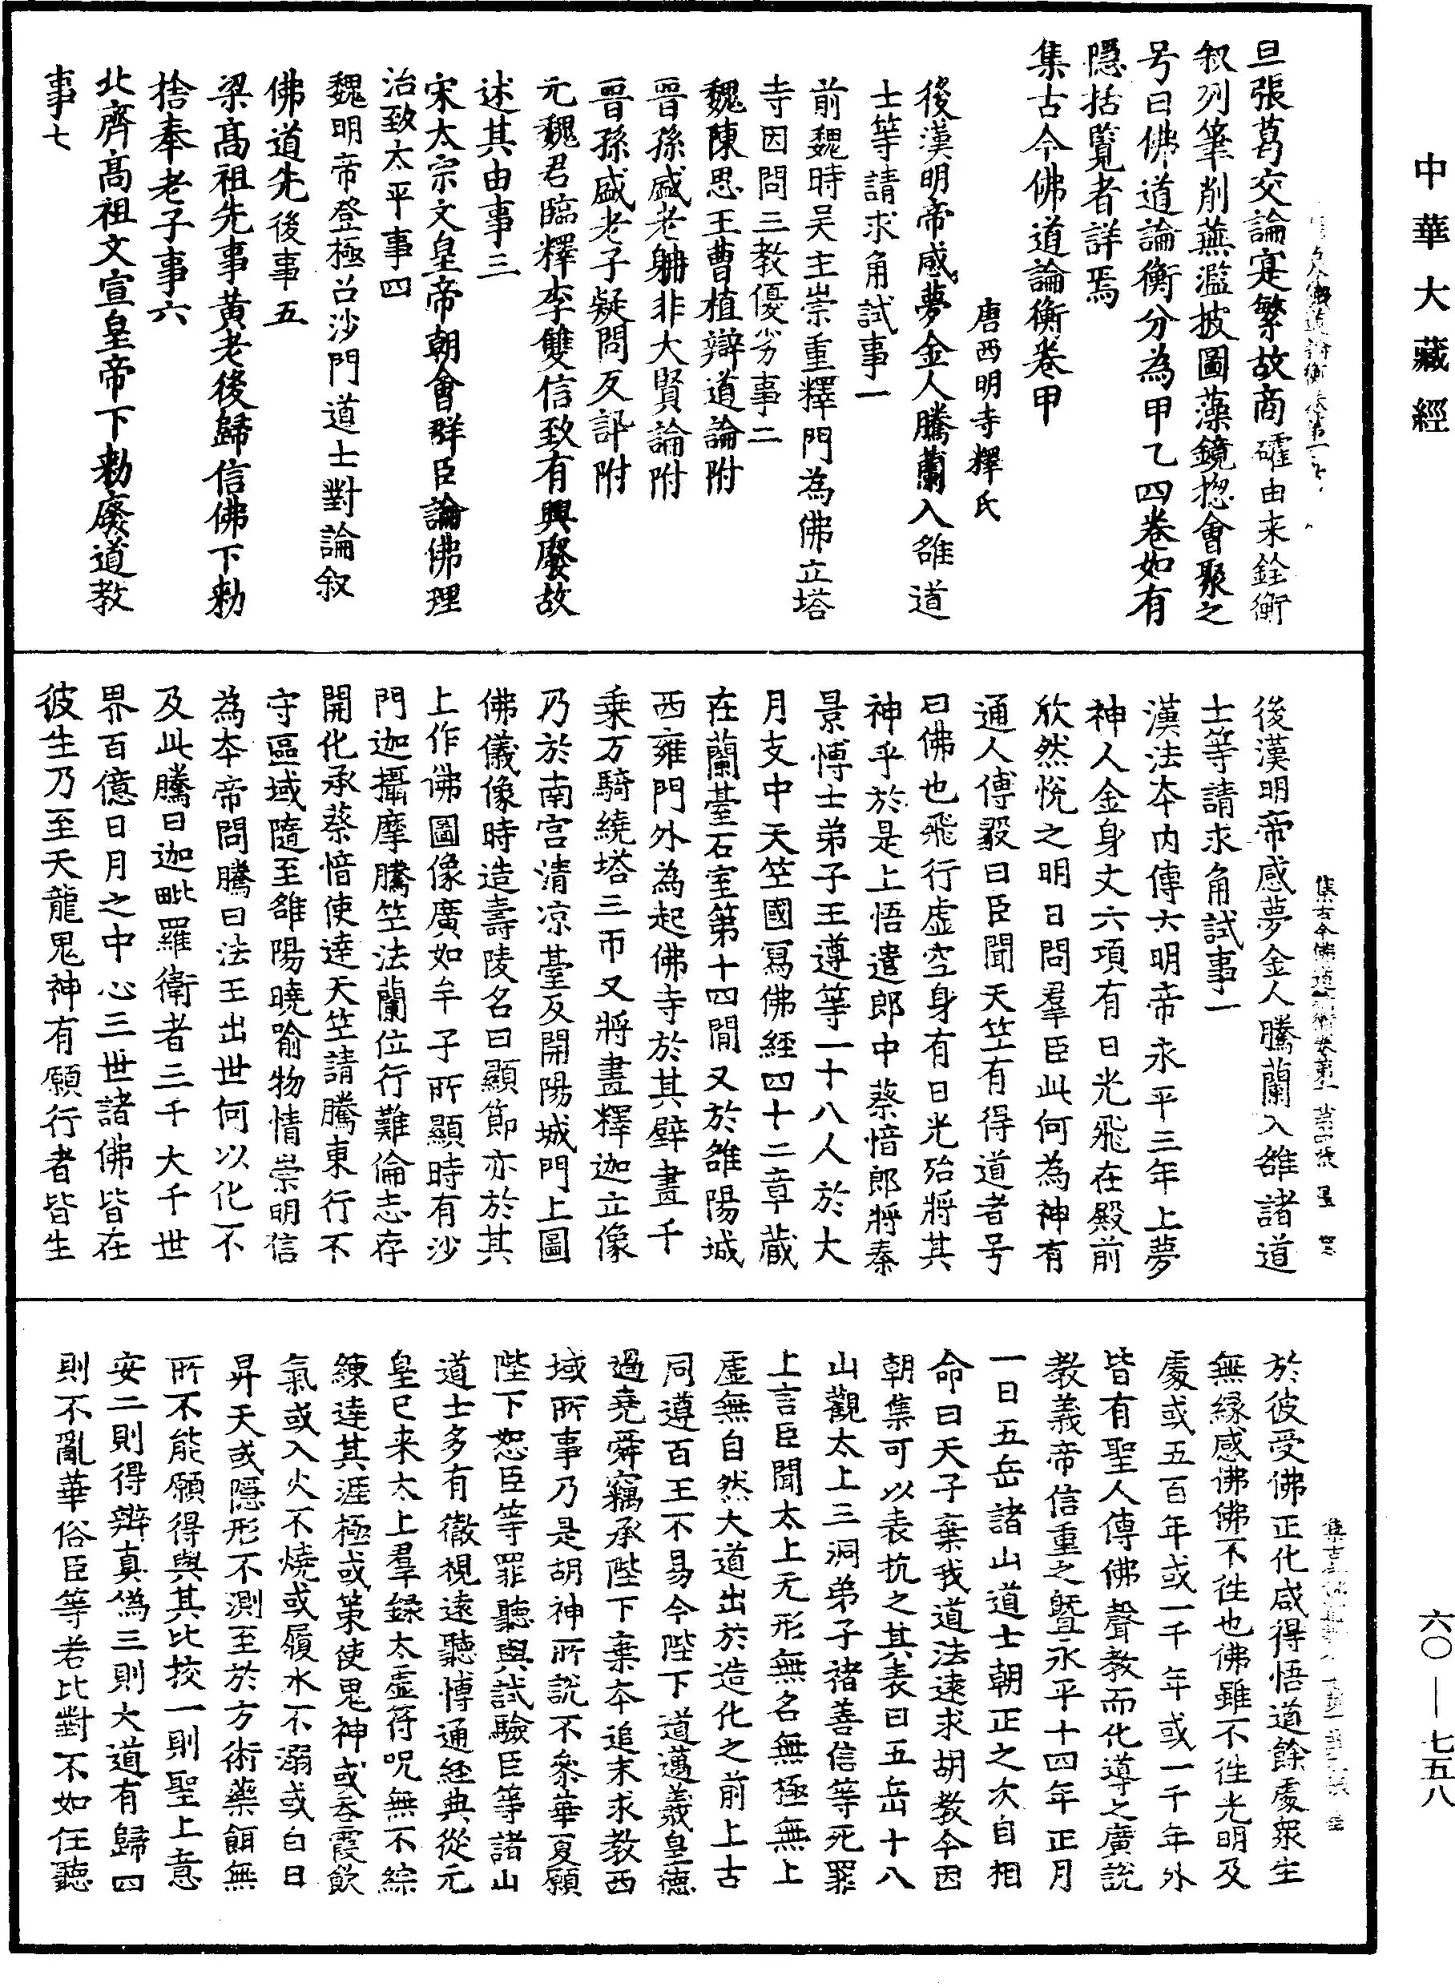 中華大藏經
旦張葛交論寔繁故商礭由来銓衡
叙列筆削蕪濫披圖藻鏡揔會聚之
号曰佛道論衡分為甲乙四卷如有
隱括覽者詳焉
集古今佛道論衡卷甲
唐西明寺釋氏
後漢明帝感夢金人騰蘭入雒道
士等請求角試事一
前魏時吴主崇重釋門為佛立塔
寺因問三教優劣事二
魏陳思王曹植辯道論附
晉孫盛老聃非大賢論附
晉孫盛老子疑問反訊附
元魏君臨釋李雙信致有興廢故
述其由事三
宋太宗文皇帝朝會群臣論佛理
治致太平事四
魏明帝登極召沙門道士對論叙
佛道先後事五
梁高祖先事黄老後歸信佛下勑
捨奉老子事六
北齊高祖文宣皇帝下勑廢道教
事七
後漢明帝感夢金人騰蘭入雒諸道
士等請求角試事一
漢法夲内傳云明帝永平三年上夢
神人金身丈六項有日光飛在殿前
欣然悅之明日問羣臣此何為神有
通人傅毅曰臣聞天竺有得道者号
曰佛也飛行虚空身有日光殆將其
神乎於是上悟遣郎中蔡愔郎將秦
景博士弟子王遵等一十八人於大
月支中天竺國寫佛經四十二章藏
在蘭臺石室第十四間又於雒陽城
西雍門外為起佛寺於其壁畫千
乗万騎繞塔三帀又將畫釋迦立像
乃於南宫清凉臺及開陽城門上圖
佛儀像時造壽陵名曰顯節亦於其
上作佛圖像廣如牟子所顯時有沙
門迦攝摩騰竺法蘭位行難倫志存
開化承蔡愔使達天竺請騰東行不
守區域隨至雒陽曉喻物情崇明信
為夲帝問騰曰法王出世何以化不
及此騰曰迦毗羅衛者三千大千世
界百億日月之中心三世諸佛皆在
彼生乃至天龍鬼神有願行者皆生
於彼受佛正化咸得悟道餘處衆生
無緣感佛佛不徃也佛雖不徃光明及
處或五百年或一千年或一千年外
皆有聖人傳佛聲教而化導之廣説
教義帝信重之曁永平十四年正月
一日五岳諸山道士朝正之次自相
命曰天子棄我道法遠求胡教今因
朝集可以表抗之其表曰五岳十八
山觀太上三洞弟子褚善信等死罪
上言臣聞太上无形無名無極無上
虚無自然大道出於造化之前上古
同遵百王不易今陛下道邁羲皇德
過堯舜竊承陛下棄夲追末求教西
域所事乃是胡神所説不叅華夏願
陛下恕臣等罪聽與試驗臣等諸山
道士多有徹視遠聽博通經典從元
皇已来太上羣録太虚符呪無不綜
練達其涯極或策使鬼神或吞霞飲
氣或入火不燒或履水不溺或白日
昇天或隱形不測至於方術藥餌無
所不能願得與其比挍一則聖上意
安二則得辯真僞三則大道有歸四
則不亂華俗臣等若比對不如任聽
六〇—七五八